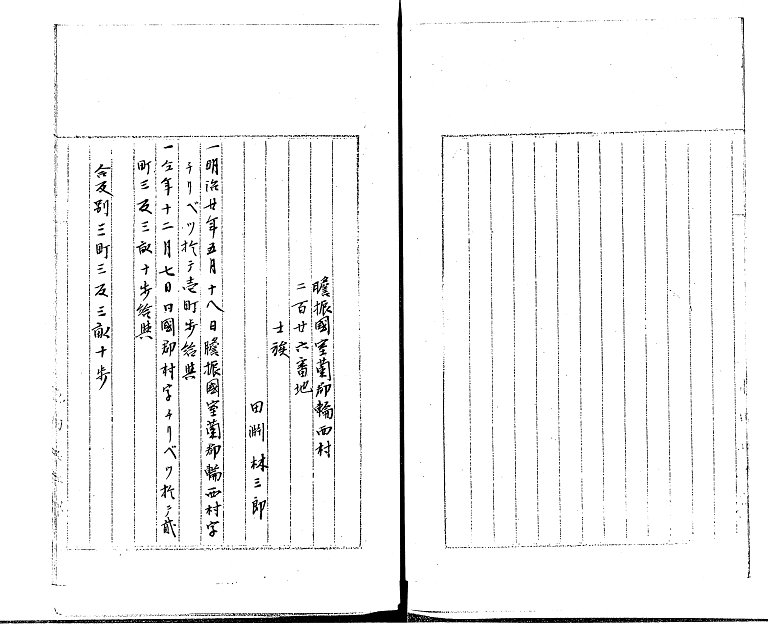 膽振國室蘭郡輪西村
二百廿六番地
士族
田渕林三郎
一明治廿年五月十八日膽振國室蘭郡輪西村字
チリベツ於テ壱町歩給與
一仝年十二月七日同國郡村字チリベツ於テ貳
町三反三畝十歩給與
合反別三町三反三畝十歩